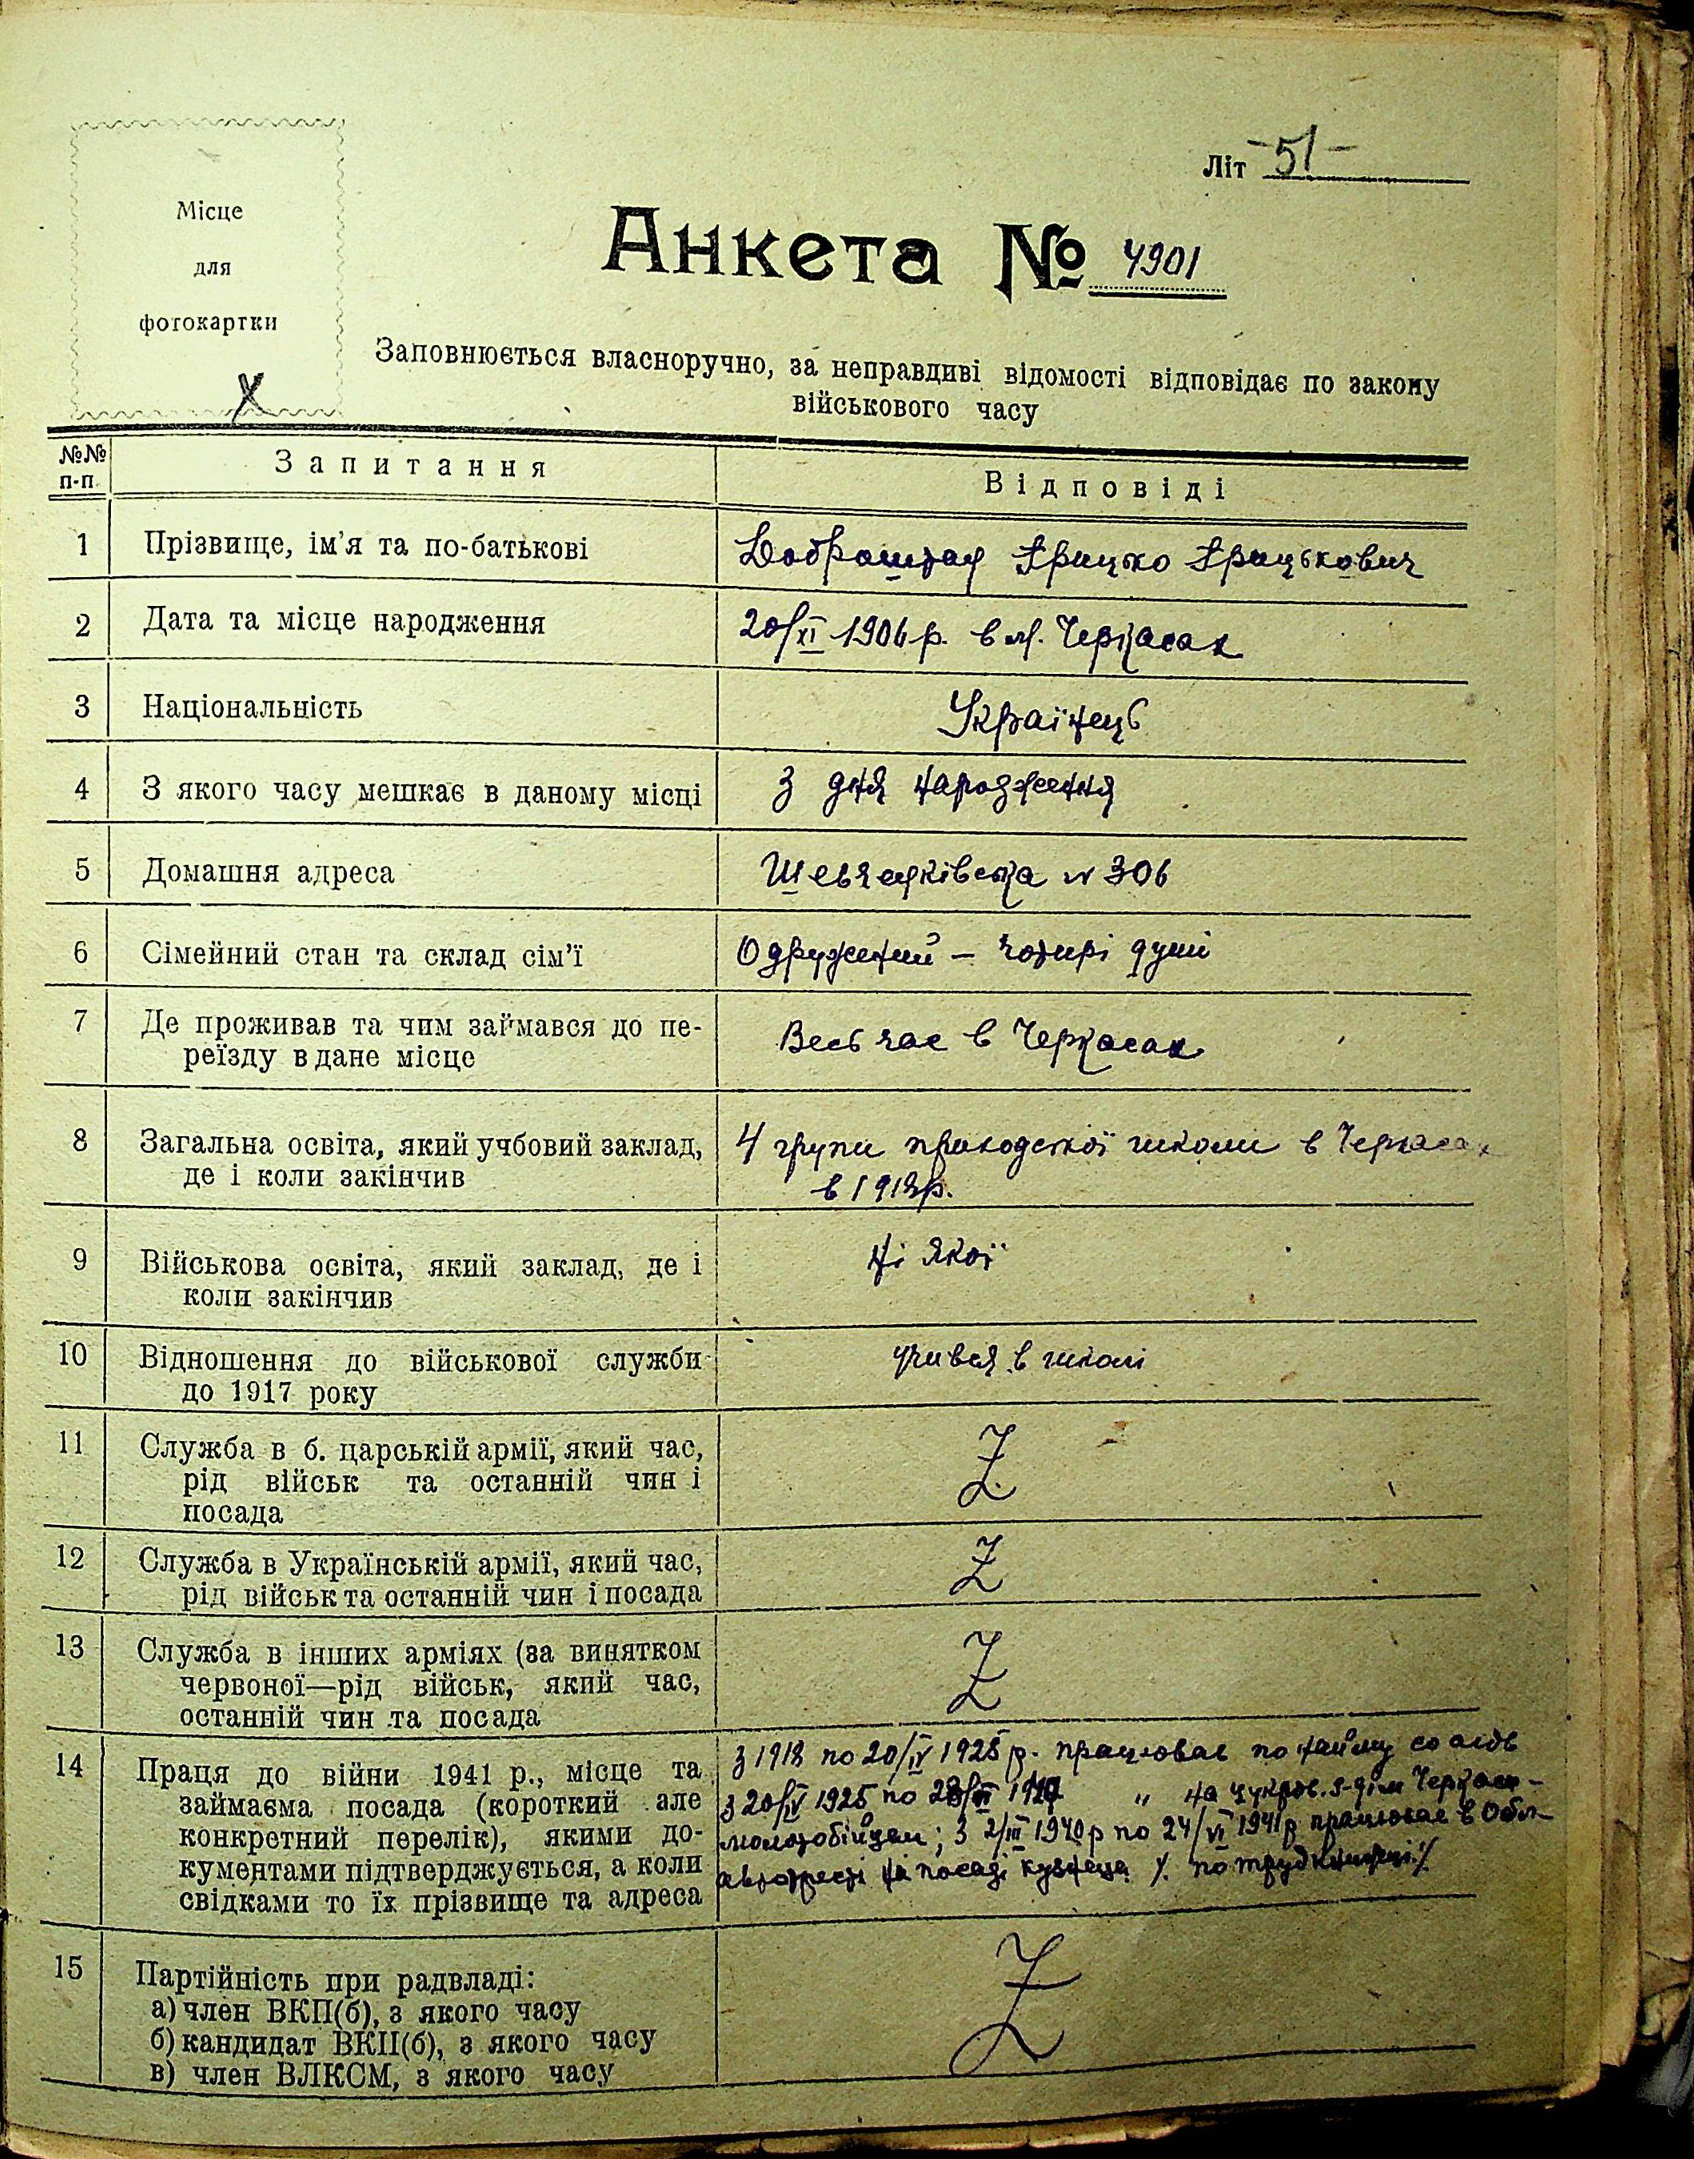 Місце
для
фотокартки
Літ -51-
Анкета № 4901
Заповнюється власноручно, за неправдиві відомості відповідає по закону
військового часу
№№ п-п.
Запитання
Відповіді
1 Прізвище, ім'я та по-батькові
Доброштан Грицько Грицькович
2 Дата та місце народження
20/XI 1906 р. в м. Черкасах
3 Національність
Українець
4 З якого часу мешкає в даному місці
З дня народження
5 Домашня адреса
Шевченківська № 306
6 Сімейний стан та склад сім'ї
Одружений – чотирі душі
7 Де проживав та чим займався до пе-
реїзду в дане місце
Весь час в Черкасах
8 Загальна освіта, який учбовий заклад,
де і коли закінчив
4 групи приходської школи в Черкасах
в 1918р.
9 Військова освіта, який заклад, де і
коли закінчив
Ні якої
10 Відношення до військової служби
до 1917 року
учився в школі
11 Служба в б. царській армії, який час,
рід військ та останній чин і
посада
Z
12 Служба в Українській армії, який час,
рід військ та останній чин і посада
Z
13 Служба в інших арміях (за винятком
червоної—рід військ, який час,
останній чин та посада
Z
14 Праця до війни 1941 р., місце та
займаєма посада (короткий але
конкретний перелік), якими до-
кументами підтверджується, а коли
свідками то їх прізвище та адреса
З 1918 по 20/IV 1925 р. працював по найму
з 20/IV 1925 по " на цукров. з-ді м Черкаси –
молотобійцем; з 2/III 1940 р по 24/VI 1941 р працював в Обл-
автотресті на посаді кузнеца /. по трудкнижці ./
15 Партійність при радвладі:
а) член ВКП(б), з якого часу
б) кандидат ВКП(б), з якого часу
в) член ВЛКСМ, з якого часу
Z